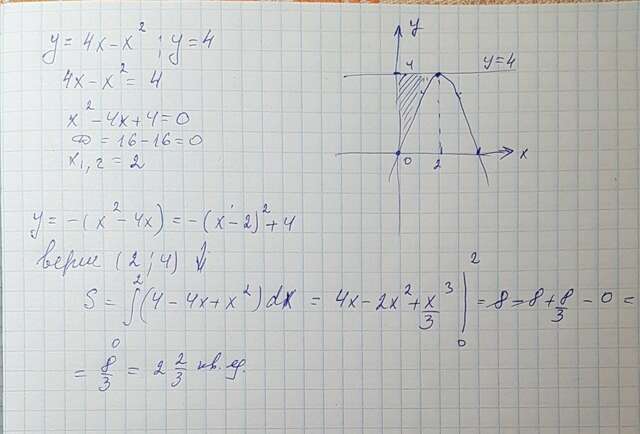 y = 4x - x² ; y = 4
4x - x² = 4
x² - 4x + 4 = 0
D = 16 - 16 = 0
x₁,₂ = 2
y
4
y = 4
0
2
x
y = -(x² - 4x) = -(x - 2)² + 4
верш (2; 4) ↓
S = ∫₀² (4 - 4x + x²) dx = 4x - 2x² + x³/3 |₀² = 8 - 8 + 8/3 - 0 =
= 8/3 = 2 2/3 кв. ед.